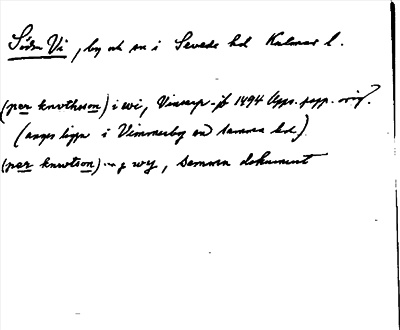 Södra Vi, by och sn i Sevede hd Kalmar l.
(per knvthsson) i wi, Vinsarp 1494 Upps. papp. orig.
(anges ligga i Vimmerby sn samma hd)
(per knwtson) wy, samma dokument